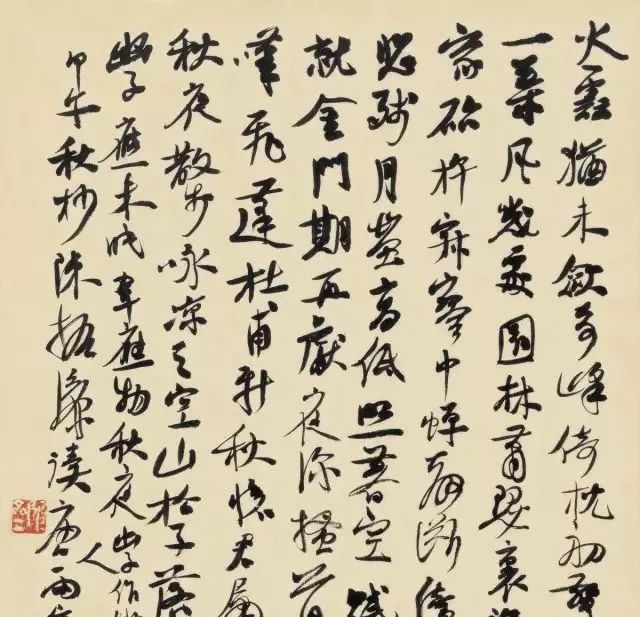 火雲猶未斂奇峰倚枕初
一葉風幾處園林蕭瑟裏
家砧杵寂寥中蟬聲斷
悲殘月螢高低照暮空賦
就金門期再獻夜深搔首
嘆飛蓬杜甫新秋懷君屬
秋夜散步咏涼天空山松子落
幽子應未眠韋應物秋夜幽子作
人
甲午秋杪陳振濂讀唐兩